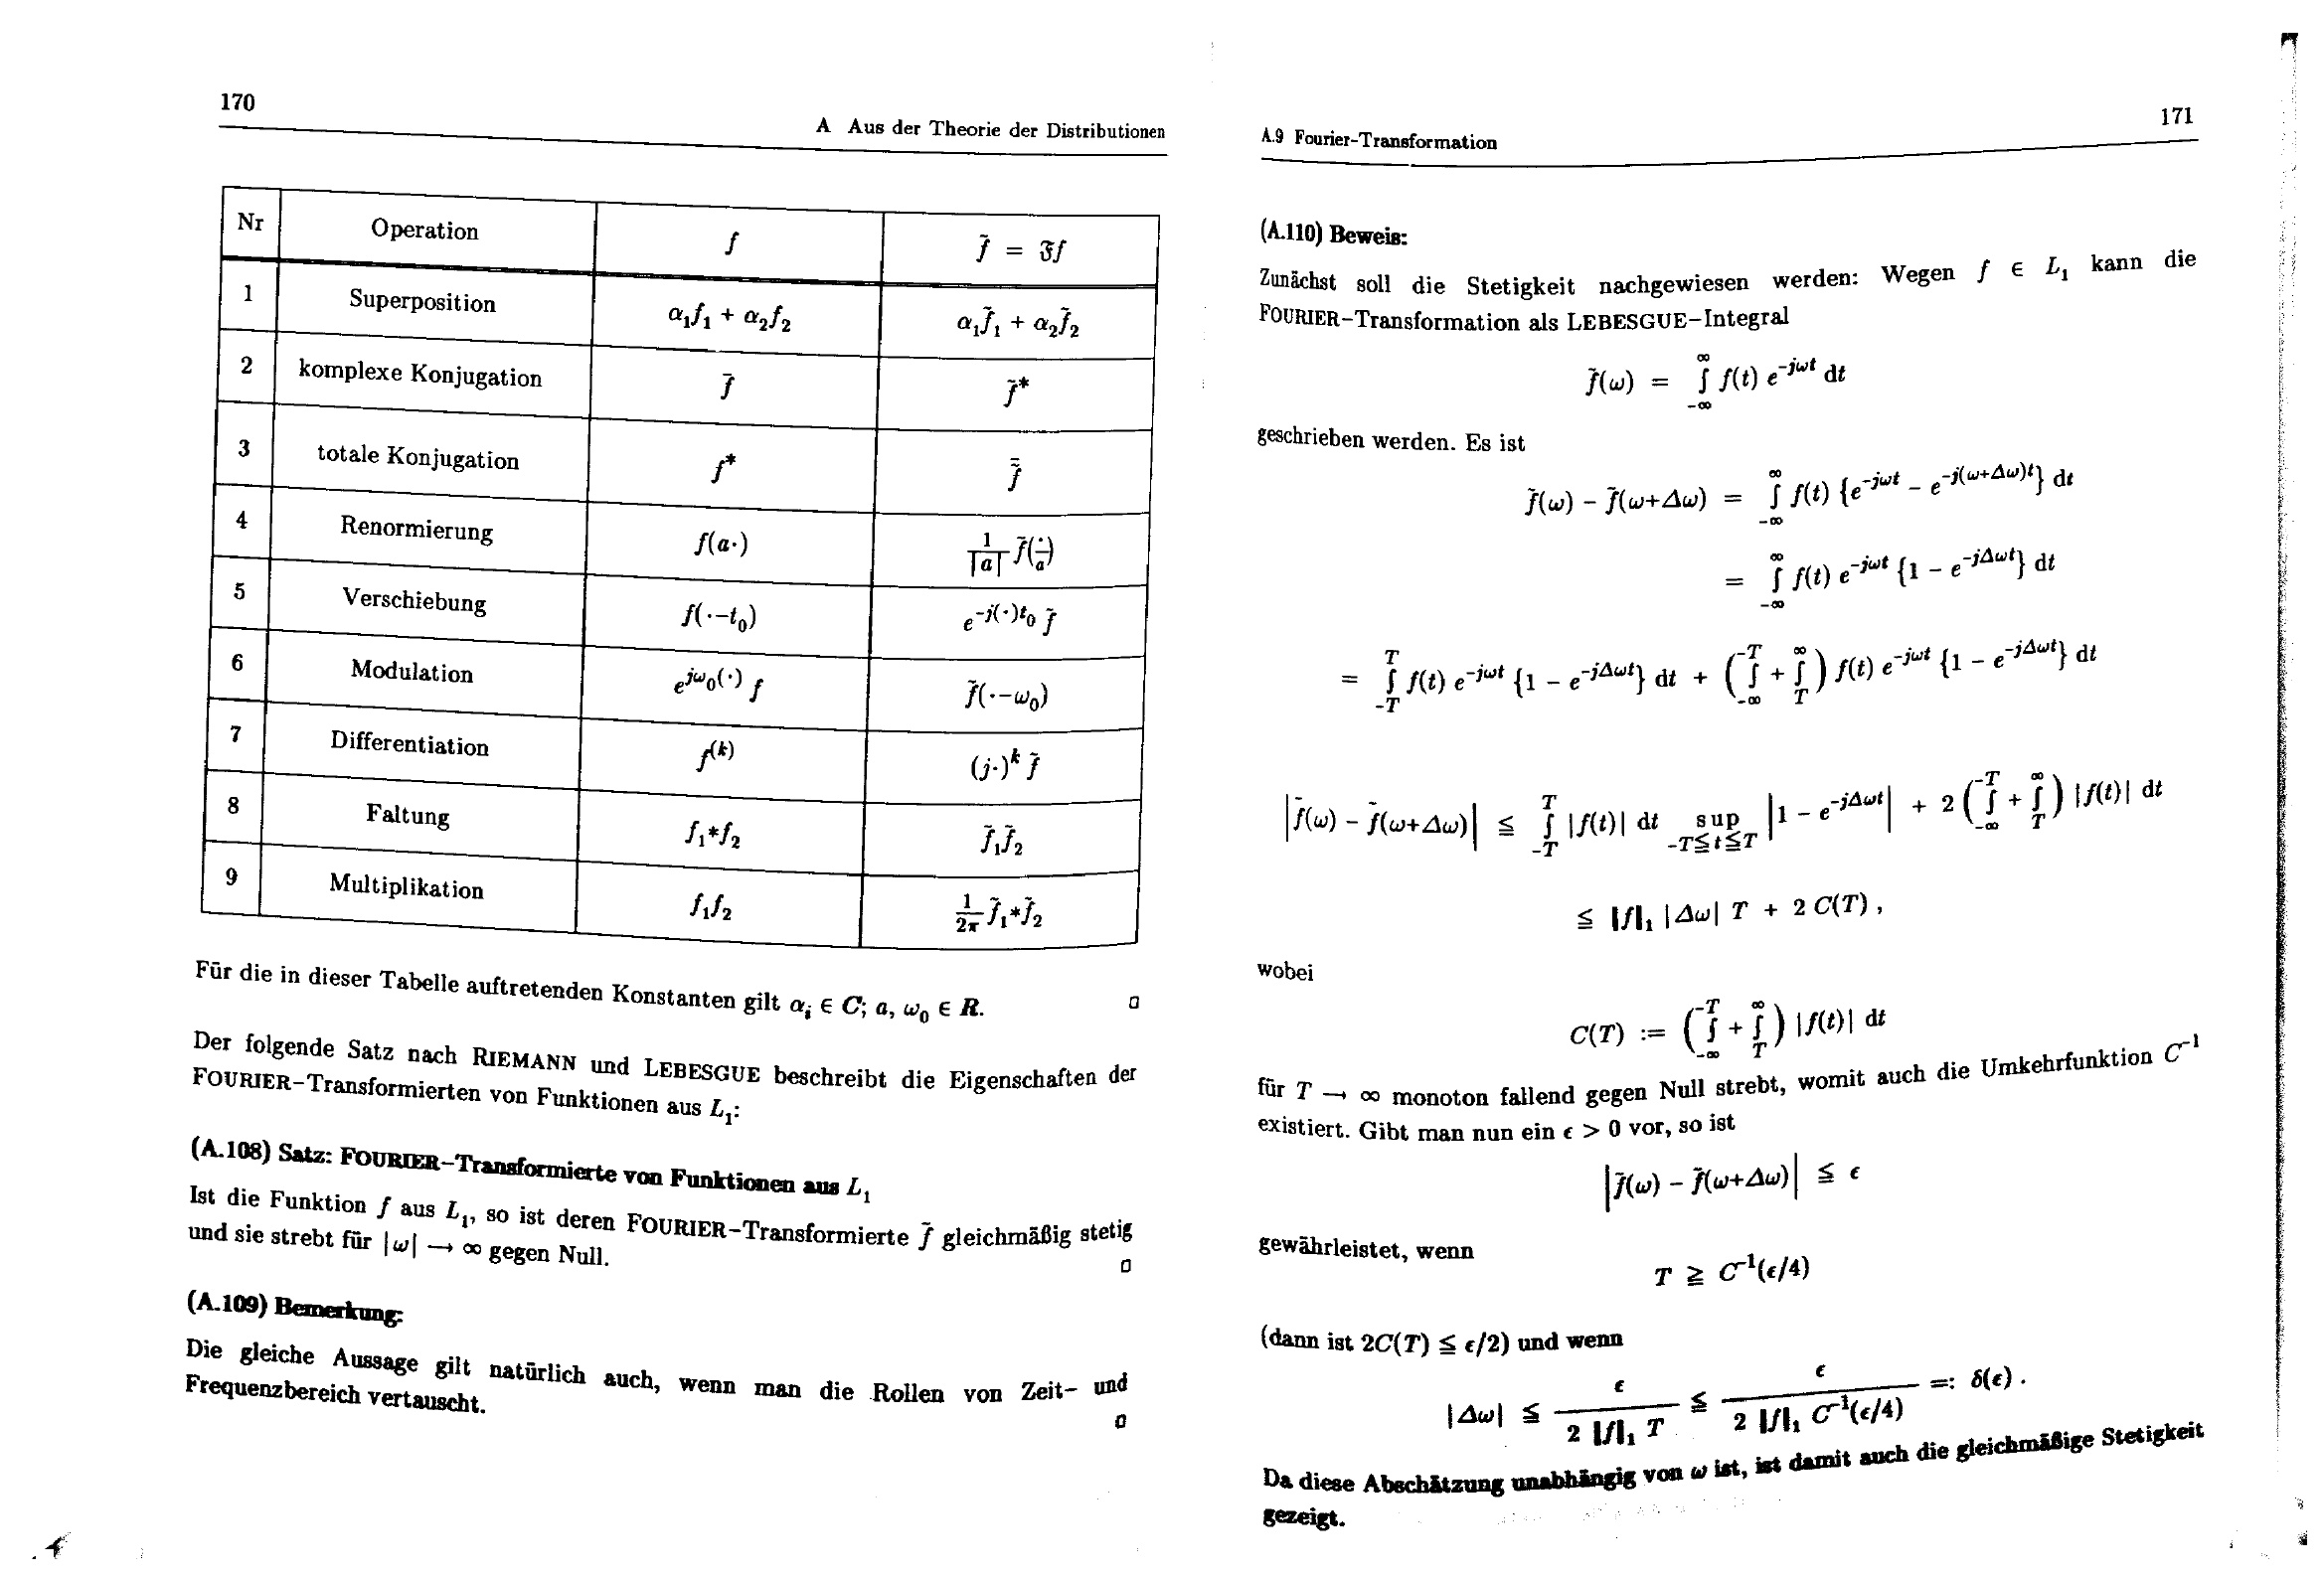 170
A Aus der Theorie der Distributionen
Nr Operation f f̃ = 𝔉f
1 Superposition α₁f₁ + α₂f₂ α₁f̃₁ + α₂f̃₂
2 komplexe Konjugation f̄ f̃*
3 totale Konjugation f* f̃̄
4 Renormierung f(a·) 1/|a| f̃(·/a)
5 Verschiebung f(·−t₀) e^{-j(·)t₀} f̃
6 Modulation e^{jω₀(·)} f f̃(·−ω₀)
7 Differentiation f^{(k)} (j·)^k f̃
8 Faltung f₁*f₂ f̃₁f̃₂
9 Multiplikation f₁f₂ 1/2π f̃₁*f̃₂
Für die in dieser Tabelle auftretenden Konstanten gilt αᵢ ∈ C; a, ω₀ ∈ R. □
Der folgende Satz nach RIEMANN und LEBESGUE beschreibt die Eigenschaften der
FOURIER–Transformierten von Funktionen aus L₁:
(A.108) Satz: FOURIER–Transformierte von Funktionen aus L₁
Ist die Funktion f aus L₁, so ist deren FOURIER–Transformierte f̃ gleichmäßig stetig
und sie strebt für |ω| → ∞ gegen Null. □
(A.109) Bemerkung:
Die gleiche Aussage gilt natürlich auch, wenn man die Rollen von Zeit– und
Frequenzbereich vertauscht. □
A.9 Fourier–Transformation 171
(A.110) Beweis:
Zunächst soll die Stetigkeit nachgewiesen werden: Wegen f ∈ L₁ kann die
FOURIER–Transformation als LEBESGUE–Integral
f̃(ω) = ∫_{-∞}^{∞} f(t) e^{-jωt} dt
geschrieben werden. Es ist
f̃(ω) − f̃(ω+Δω) = ∫_{-∞}^{∞} f(t) {e^{-jωt} − e^{-j(ω+Δω)t}} dt
= ∫_{-∞}^{∞} f(t) e^{-jωt} {1 − e^{-jΔωt}} dt
= ∫_{-T}^{T} f(t) e^{-jωt} {1 − e^{-jΔωt}} dt + (∫_{-∞}^{-T} + ∫_{T}^{∞}) f(t) e^{-jωt} {1 − e^{-jΔωt}} dt
|f̃(ω) − f̃(ω+Δω)| ≦ ∫_{-T}^{T} |f(t)| dt sup_{-T≦t≦T} |1 − e^{-jΔωt}| + 2 (∫_{-∞}^{-T} + ∫_{T}^{∞}) |f(t)| dt
≦ ‖f‖₁ |Δω| T + 2 C(T) ,
wobei
C(T) := (∫_{-∞}^{-T} + ∫_{T}^{∞}) |f(t)| dt
für T → ∞ monoton fallend gegen Null strebt, womit auch die Umkehrfunktion C⁻¹
existiert. Gibt man nun ein ε > 0 vor, so ist
|f̃(ω) − f̃(ω+Δω)| ≦ ε
gewährleistet, wenn
T ≧ C⁻¹(ε/4)
(dann ist 2C(T) ≦ ε/2) und wenn
|Δω| ≦ ε / (2 ‖f‖₁ T) ≦ ε / (2 ‖f‖₁ C⁻¹(ε/4)) =: δ(ε) .
Da diese Abschätzung unabhängig von ω ist, ist damit auch die gleichmäßige Stetigkeit
gezeigt.